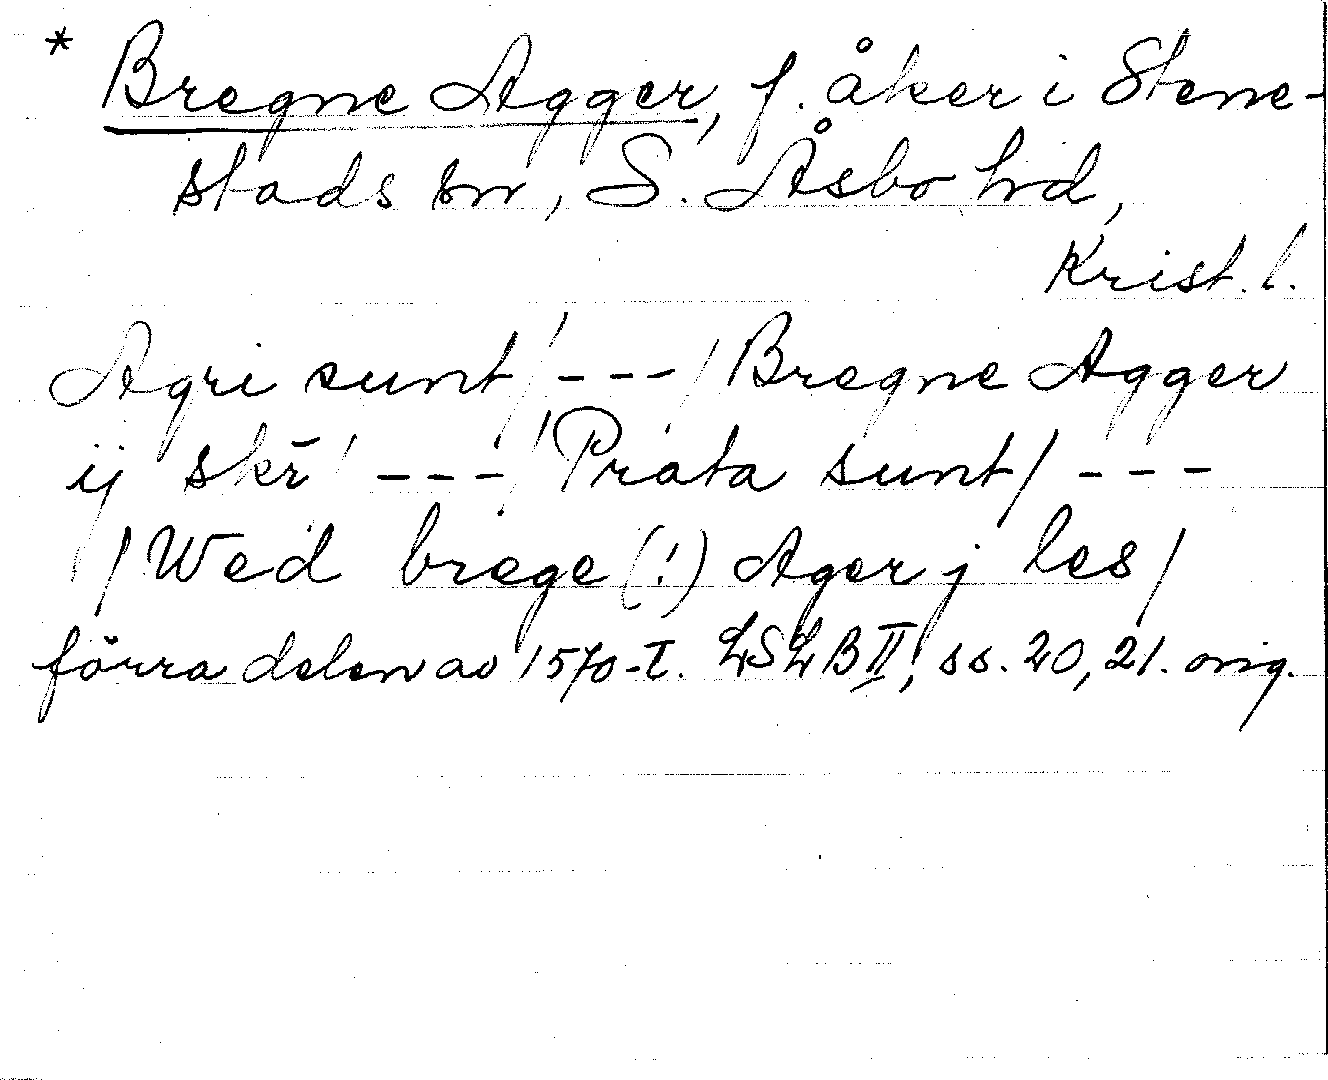 * Bregne Agger, f. åker i Stene-
stads sn, S. Åsbo hd,
Krist. l.
Agri sunt / --- / Bregne Agger
ij skr̄ / --- / Prata sunt / ---
/ Wed brege (!) Ager j les /
förra delen av 1570-t. LSLB II, ss. 20, 21. orig.